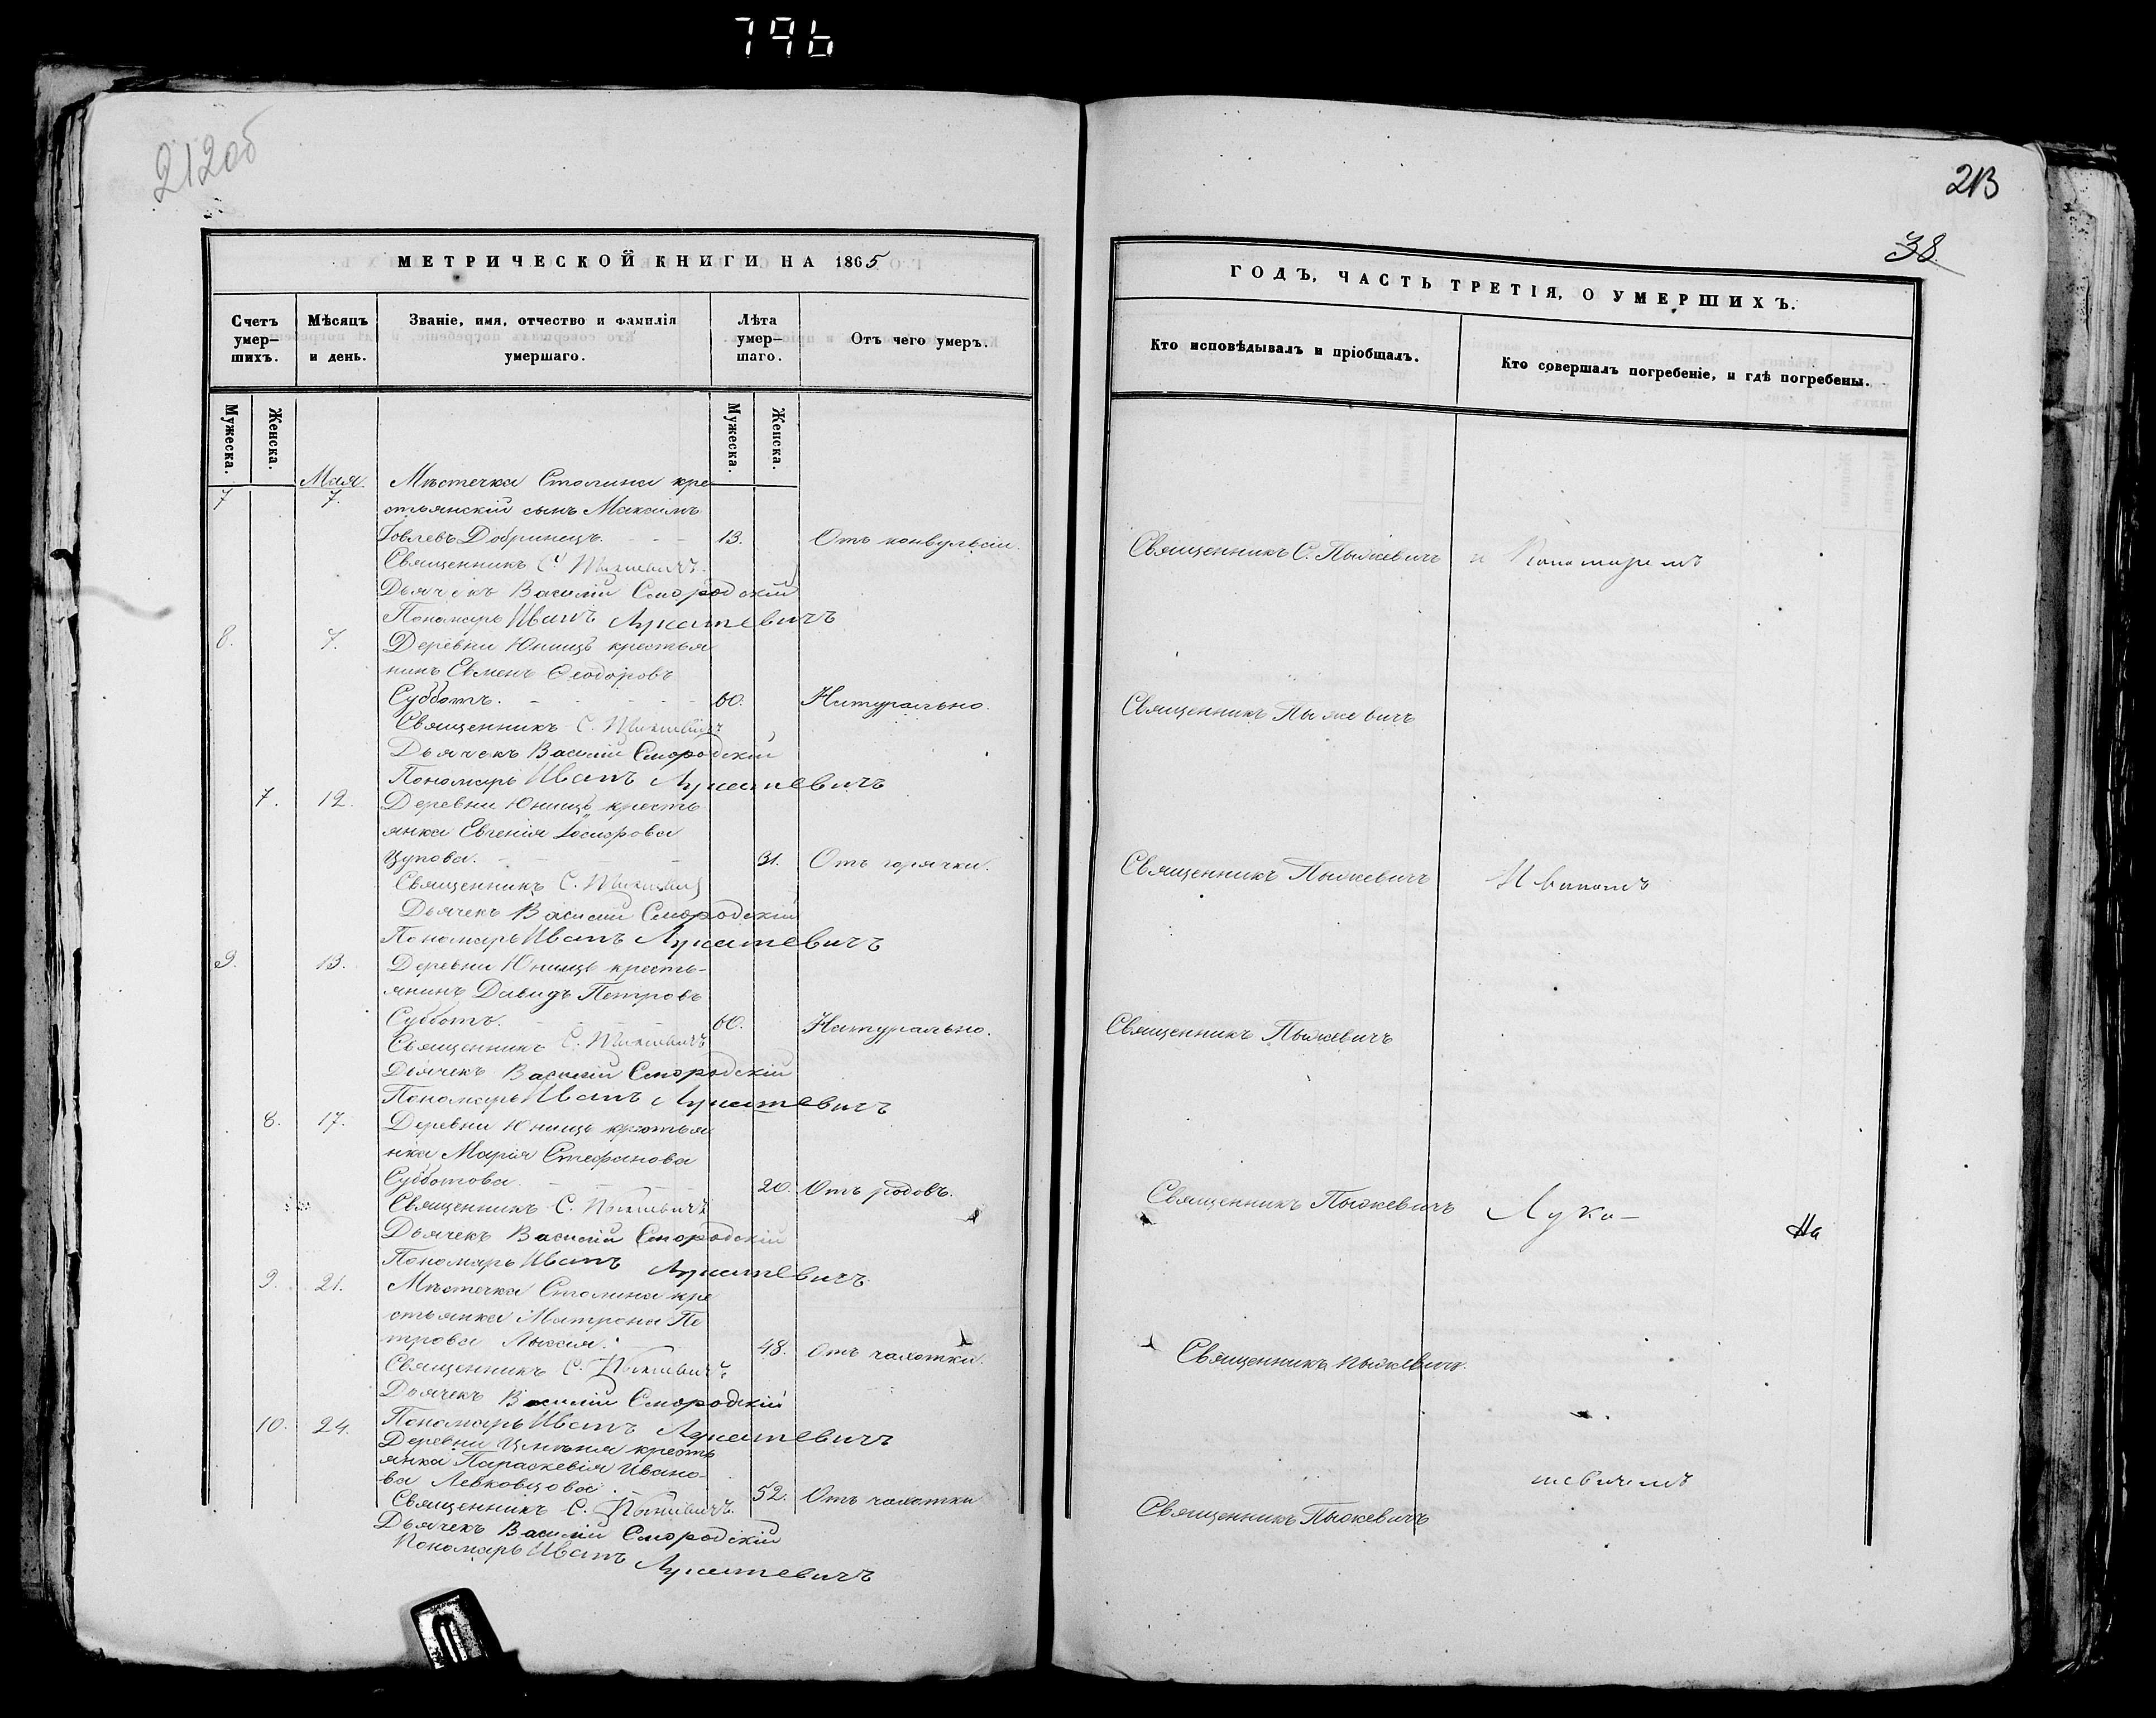 796
212об
213
38
МЕТРИЧЕСКОЙ КНИГИ НА 1865
Счетъ умер-
шихъ.
Мѣсяцъ
и день.
Званіе, имя, отчество и фамилія
умершаго.
Лѣта
умер-
шаго.
Отъ чего умеръ.
Мужеска.
Женска.
Мужеска.
Женска.
Мая.
7 7. Мѣстечка Столина кре
стьянскій сынъ Максимъ
Іовлевъ Добринецъ. 13. Отъ конвульсіи.
Священникъ С. Пыжевичъ.
Дьячекъ Василій Смородскій
Пономарь Иванъ Лукашевичъ
8. 7. Деревни Юнищъ крестья
нинъ Евменъ Ѳеодоровъ
Субботъ. 60. Натурально.
Священникъ С. Пыжевичъ
Дьячекъ Василій Смородскій
Пономарь Иванъ Лукашевичъ
7. 12. Деревни Юнищъ кресть
янка Евгенія Іосифова
Цупова. 31. Отъ горячки.
Священникъ С. Пыжевичъ
Дьячекъ Василій Смородскій
Пономарь Иванъ Лукашевичъ
9. 13. Деревни Юнищъ кресть-
янинъ Давидъ Петровъ
Субботъ. 60. Натурально.
Священникъ С. Пыжевичъ
Дьячекъ Василій Смородскій
Пономарь Иванъ Лукашевичъ
8. 17. Деревни Юнищъ крестья
нка Марія Стефанова
Субботова. 20. Отъ родовъ.
Священникъ С. Пыжевичъ
Дьячекъ Василій Смородскій
Пономарь Иванъ Лукашевичъ
9. 21. Мѣстечка Столина кре
стьянка Матрона Пе
трова 48. Отъ чахотки.
Священникъ С. Пыжевичъ
Дьячекъ Василій Смородскій
Пономарь Иванъ Лукашевичъ
10. 24. Деревни кресть
янка Параскевія Ивано-
ва Левковцова 52. Отъ чахотки
Священникъ С. Пыжевичъ.
Дьячекъ Василій Смородскій
Пономарь Иванъ Лукашевичъ
ГОДЪ, ЧАСТЬ ТРЕТІЯ, О УМЕРШИХЪ.
Кто исповѣдывалъ и пріобщалъ.
Кто совершалъ погребеніе, и гдѣ погребены.
Священникъ С. Пыжевичъ и Пономаремъ
Священникъ Пыжевичъ
Священникъ Пыжевичъ Иваномъ
Священникъ Пыжевичъ
Священникъ Пыжевичъ Лука-
На
Священникъ Пыжевичъ.
шевичемъ
Священникъ Пыжевичъ